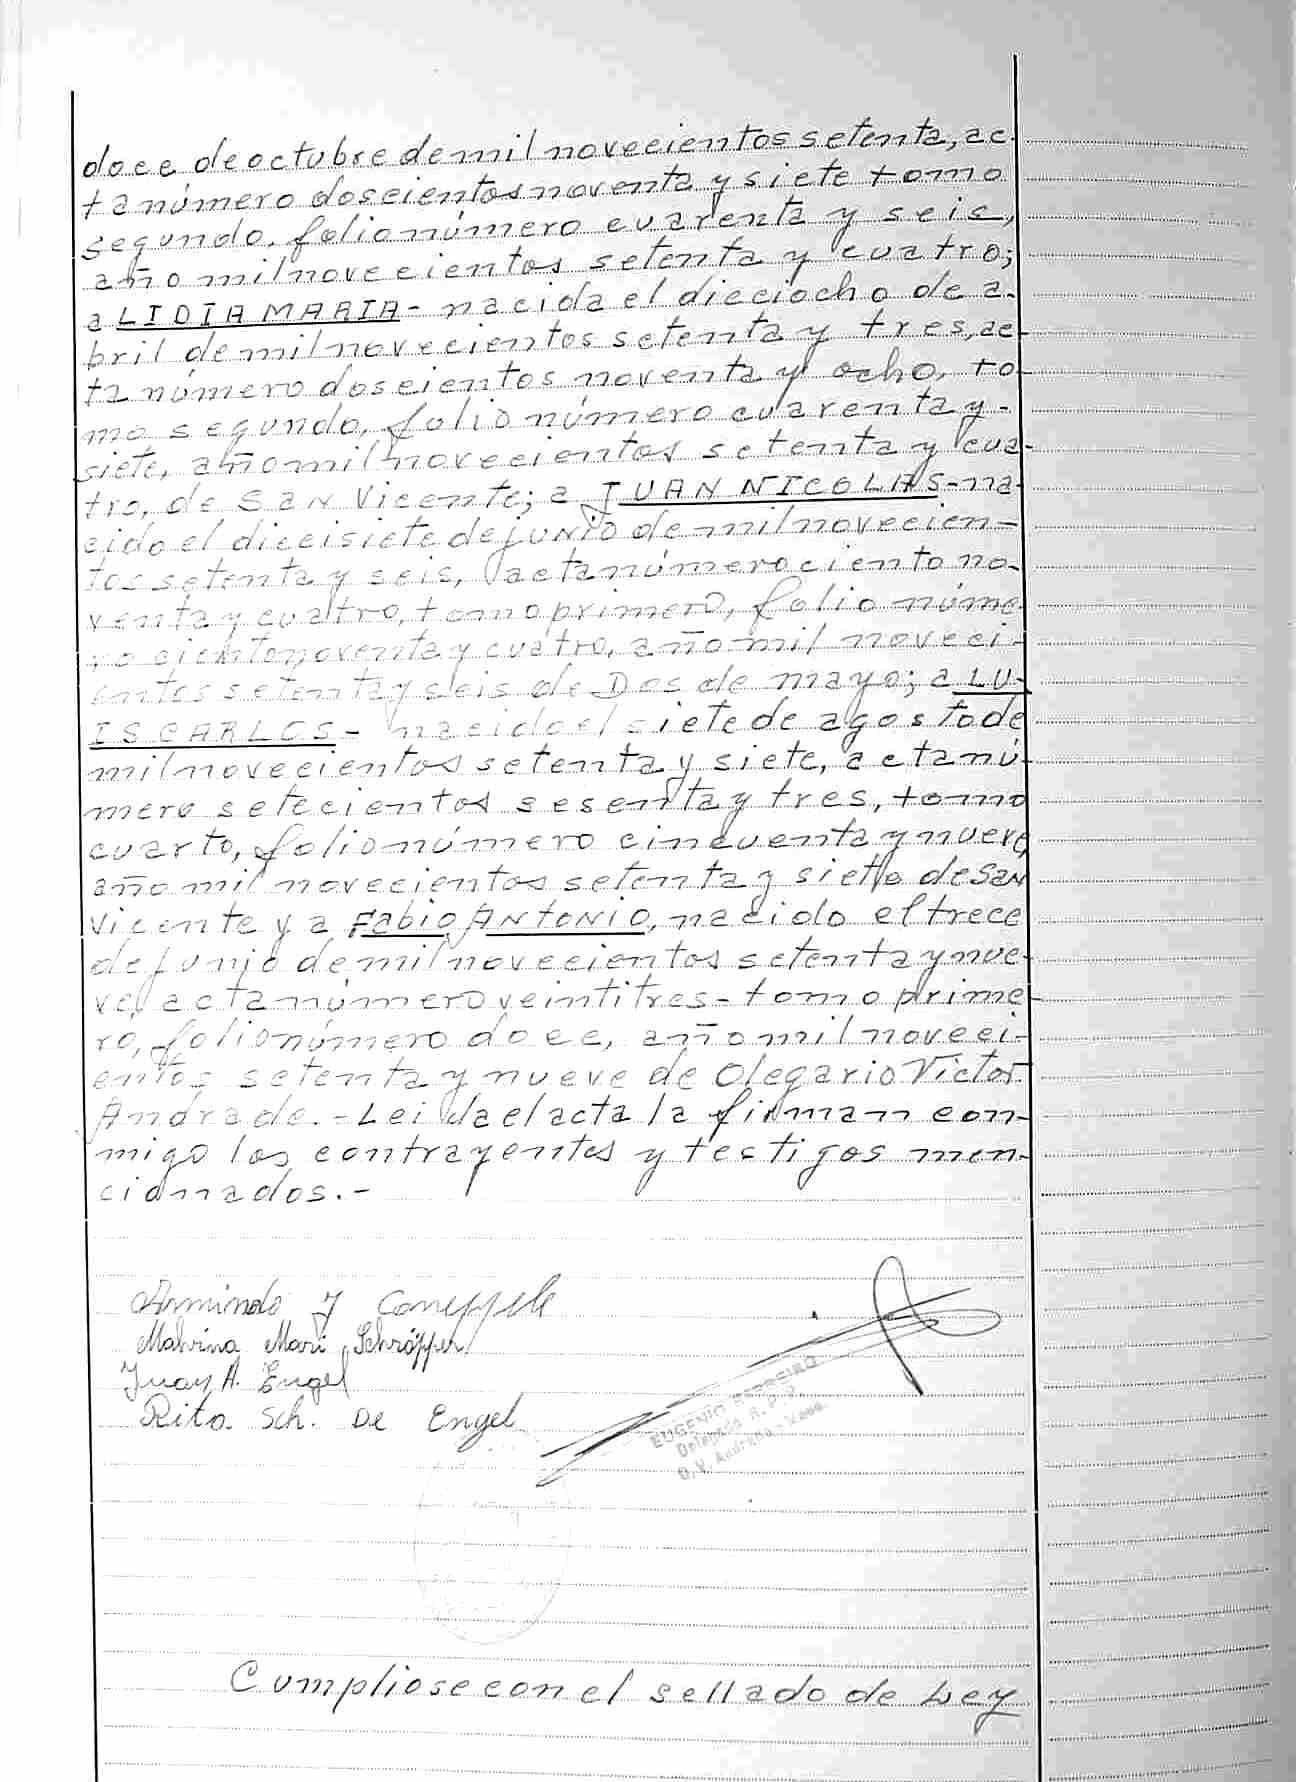 doce de octubre de mil novecientos setenta, ac-
ta número doscientos noventa y siete tomo
segundo, folio número cuarenta y seis,
año mil novecientos setenta y cuatro;
a LIDIA MARIA - nacida el dieciocho de a-
bril de mil novecientos setenta y tres, ac-
ta número doscientos noventa y ocho, to-
mo segundo, folio número cuarenta y -
siete, año mil novecientos setenta y cua-
tro, de San Vicente; a JUAN NICOLAS - na-
cido el diecisiete de junio de mil novecien-
tos setenta y seis, acta número ciento no-
venta y cuatro, tomo primero, folio núme-
ro ciento noventa y cuatro, año mil noveci-
entos setenta y seis de Dos de mayo; a LU-
IS CARLOS - nacido el siete de agosto de
mil novecientos setenta y siete, acta nú-
mero setecientos sesenta y tres, tomo
cuarto, folio número cincuenta y nueve,
año mil novecientos setenta y siete de San
Vicente y a Fabio Antonio, nacido el trece
de junio de mil novecientos setenta y nue-
ve, acta número veintitres - tomo prime-
ro, folio número doce, año mil noveci-
entos setenta y nueve de Olegario Victor
Andrade. - Leida el acta la firman con-
migo los contrayentes y testigos men-
cionados. -
Armindo J Coneppele
Malvina Mari Schröpper
Juan A. Engel
Rita Sch. De Engel
EUGENIO FERREIRO
Delegado R. P. P.
O. V. Andrade - Mnes.
Cumpliose con el sellado de Ley